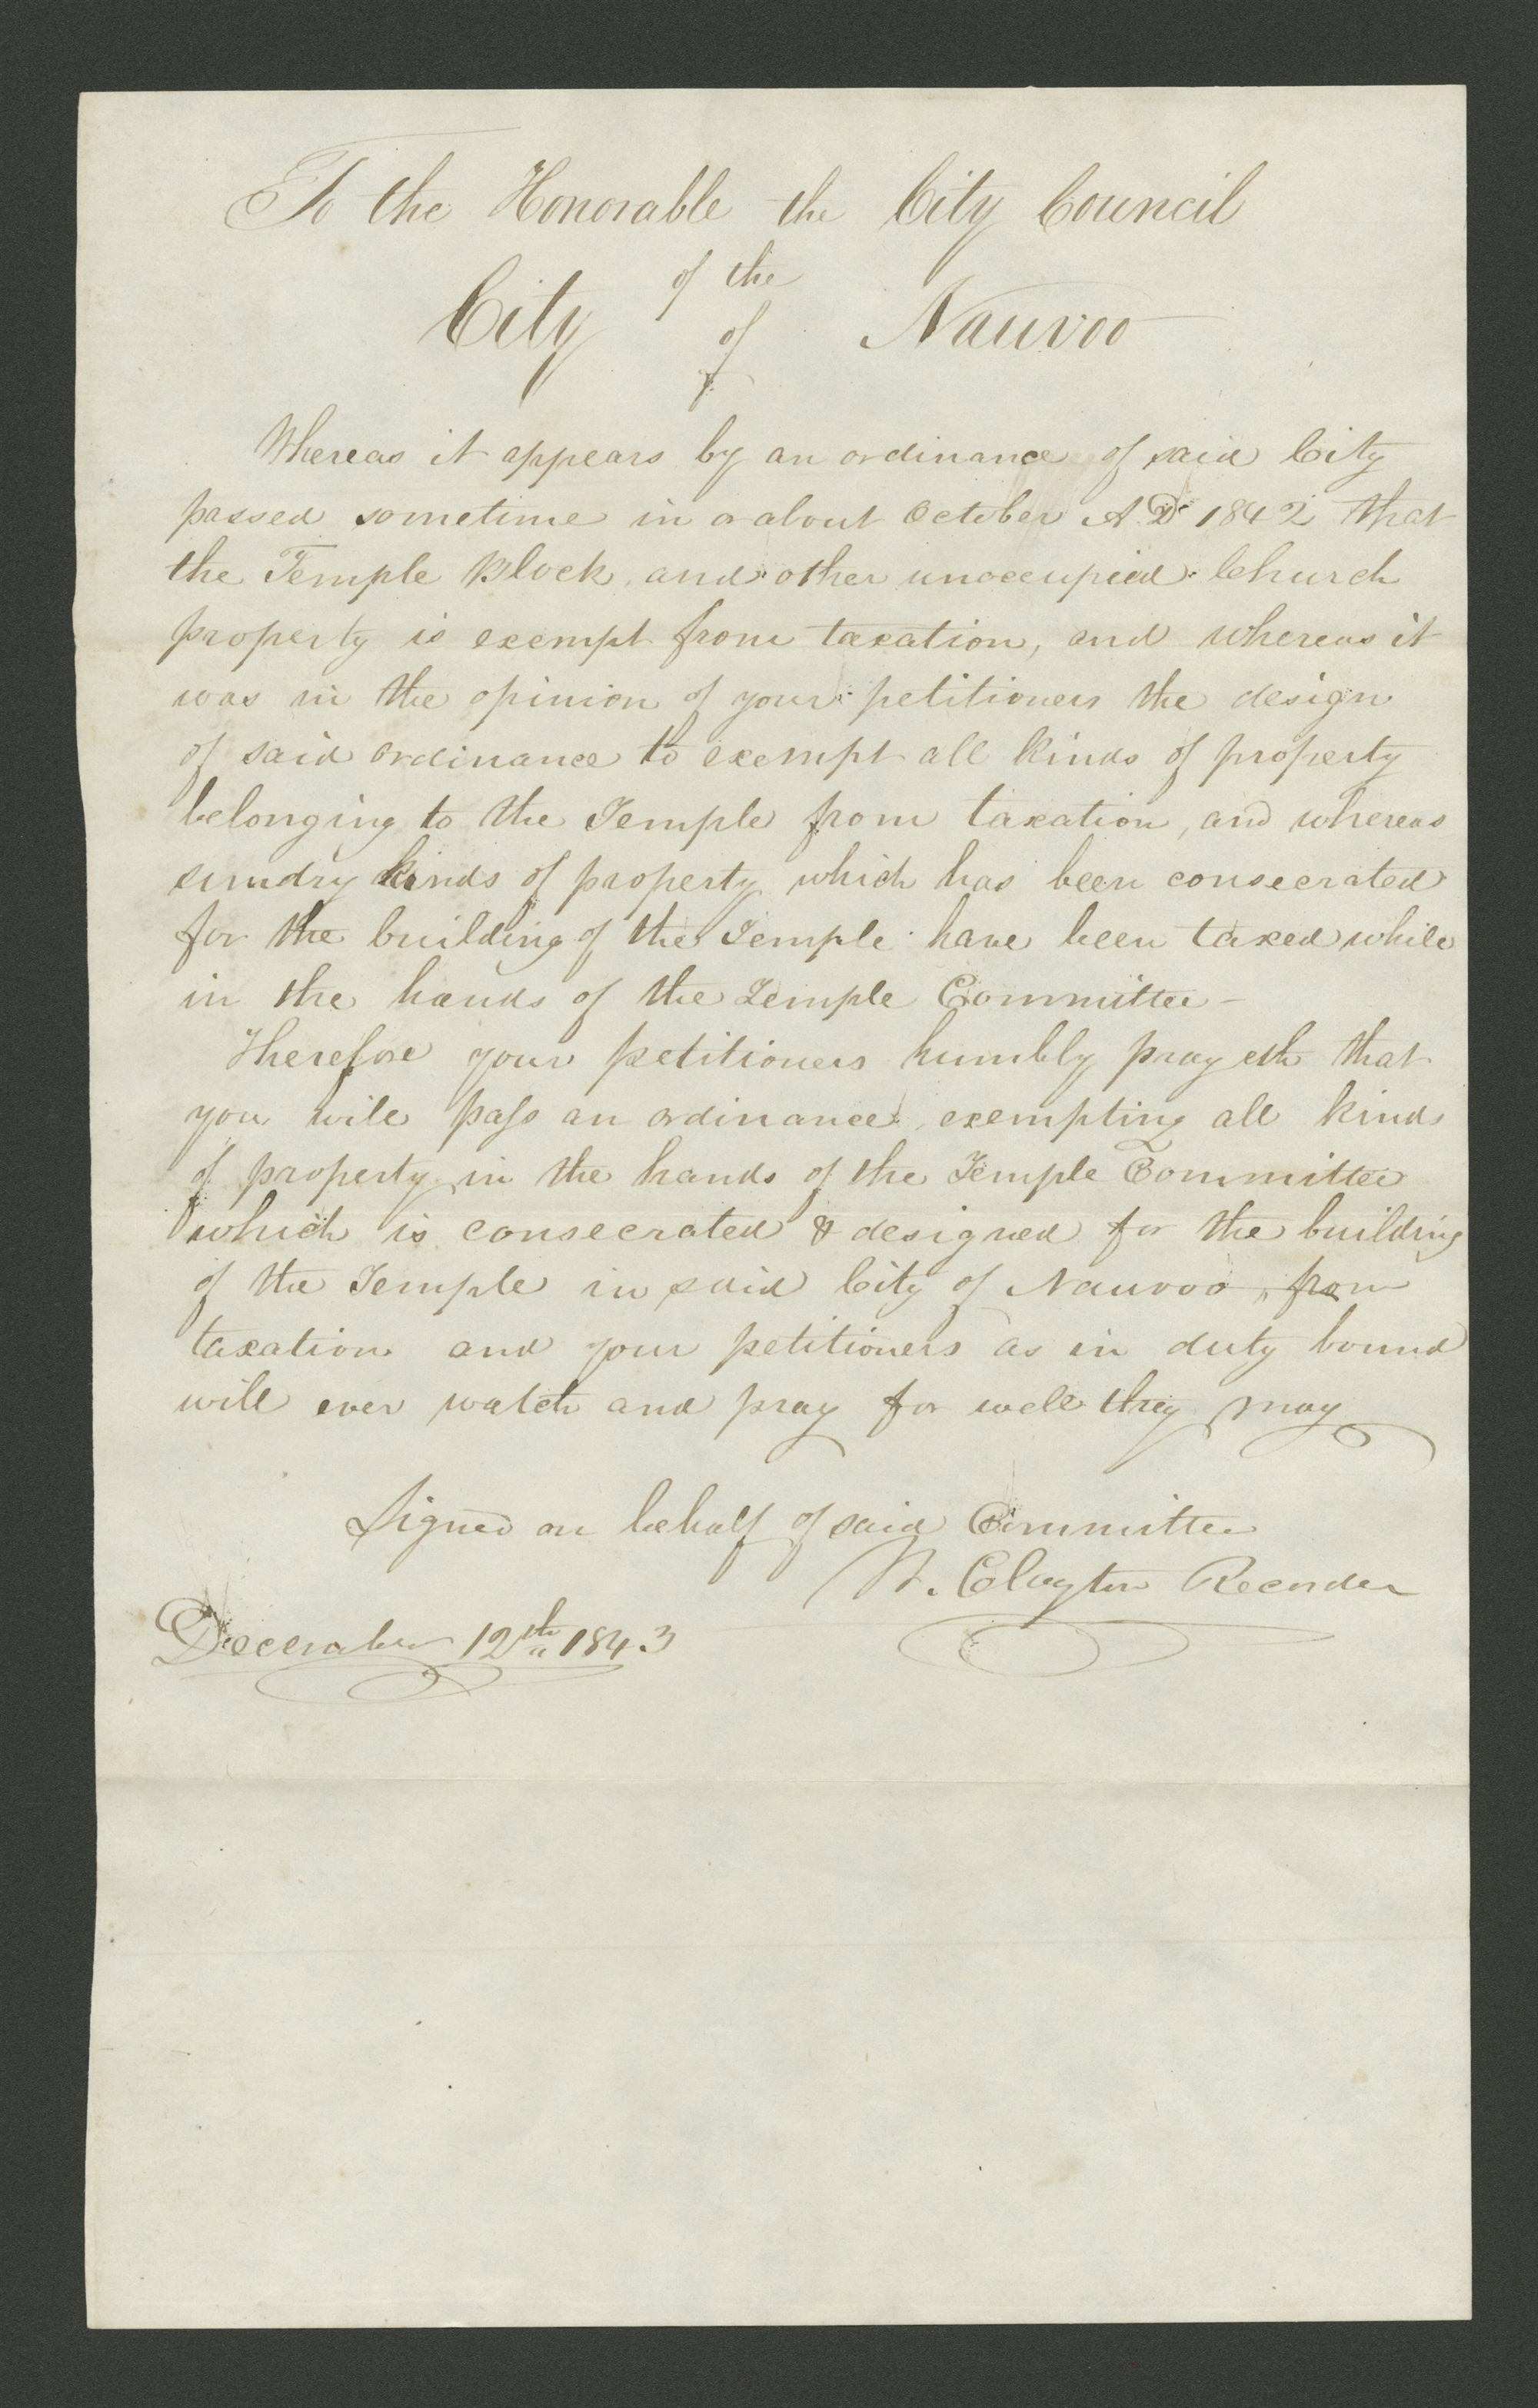 To the Honorable the City Council
of the
City of Nauvoo
Whereas it appears by an ordinance of said City
passed sometime in or about October A.D. 1842 that
the Temple Block, and other unoccupied Church
property is exempt from taxation, and whereas it
was in the opinion of your petitioners the design
of said ordinance to exempt all kinds of property
belonging to the Temple from taxation, and whereas
sundry kinds of property which has been consecrated
for the building of the Temple have been taxed while
in the hands of the Temple Committee—
Therefore your petitioners humbly prayeth that
you will pass an ordinance, exempting all kinds
of property in the hands of the Temple Committee
which is consecrated & designed for the building
of the Temple in said City of Nauvoo, from
taxation and your petitioners as in duty bound
will ever watch and pray for well they may
Signed on behalf of said Committee
W. Clayton Recorder
December 12th 1843